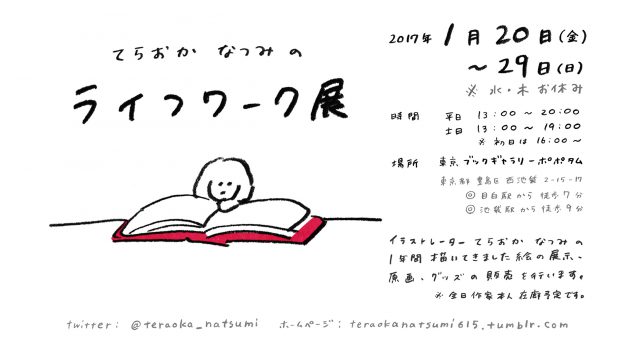 てらおか なつみ の
ライフワーク展
2017年 1月20日(金)
〜29日(日)
※ 水・木 お休み
時間 平日 13:00 〜 20:00
土日 13:00 〜 19:00
※ 初日は 16:00 〜
場所 東京 ブックギャラリーポポタム
東京都 豊島区 西池袋 2-15-17
◎ 目白駅から 徒歩7分
◎ 池袋駅から 徒歩9分
イラストレーター てらおか なつみ の
1年間 描いてきました絵の展示、
原画、グッズの 販売 を行います。
※ 全日作家本人 在廊予定です。
twitter: @teraoka_natsumi ホームページ: teraokanatsumi615.tumblr.com